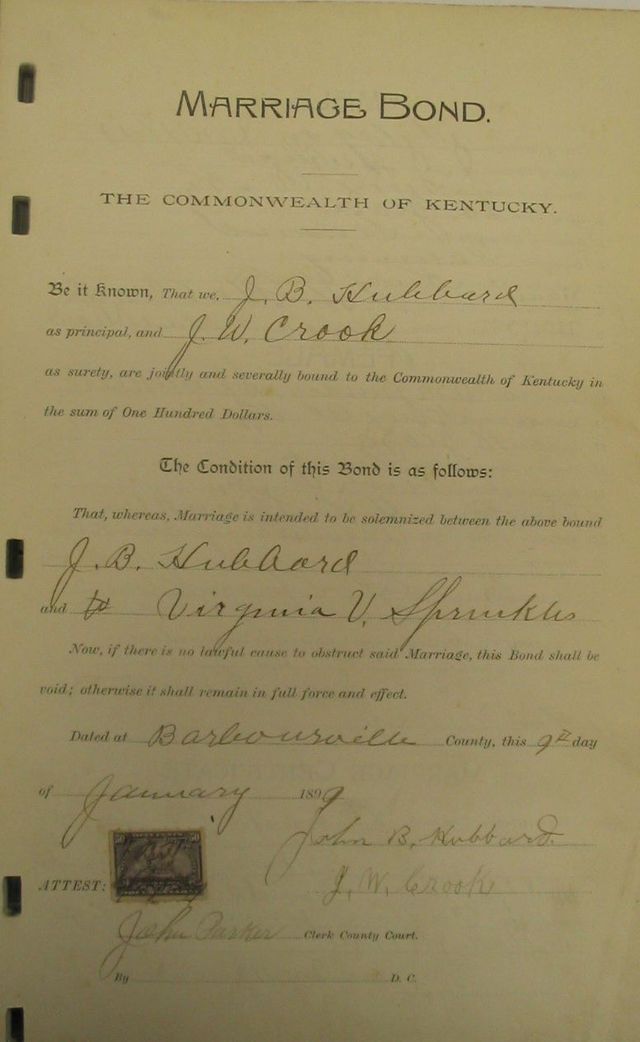 MARRIAGE BOND.
THE COMMONWEALTH OF KENTUCKY.
Be it Known, That we, J. B. Hubbard
as principal, and J. W. Crook
as surety, are jointly and severally bound to the Commonwealth of Kentucky in
the sum of One Hundred Dollars.
The Condition of this Bond is as follows:
That, whereas, Marriage is intended to be solemnized between the above bound
J. B. Hubbard
and Virginia V. Sprinkles
Now, if there is no lawful cause to obstruct said Marriage, this Bond shall be
void; otherwise it shall remain in full force and effect.
Dated at Barbourville County, this 9th day
of January 1899
John B. Hubbard.
ATTEST: J. W. Crook
John Parker Clerk County Court.
By D. C.